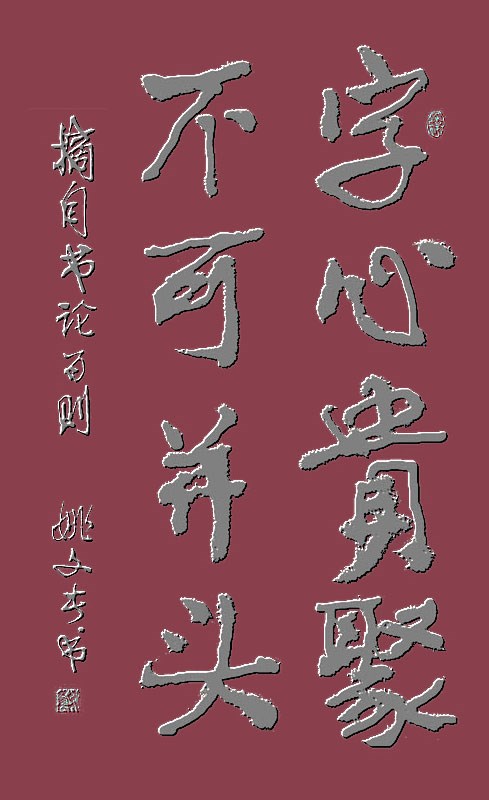 字心贵聚
不可并头
摘自书论百则
姚文奇书